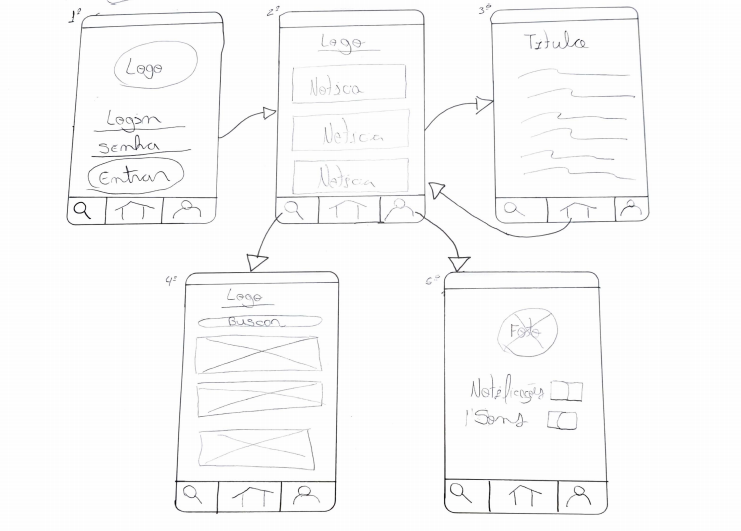 1º
Logo
Login
Senha
Entrar
2º
Logo
Notícia
Notícia
Notícia
3º
Título
4º
Logo
Buscar
Foto
Notificações
Sons